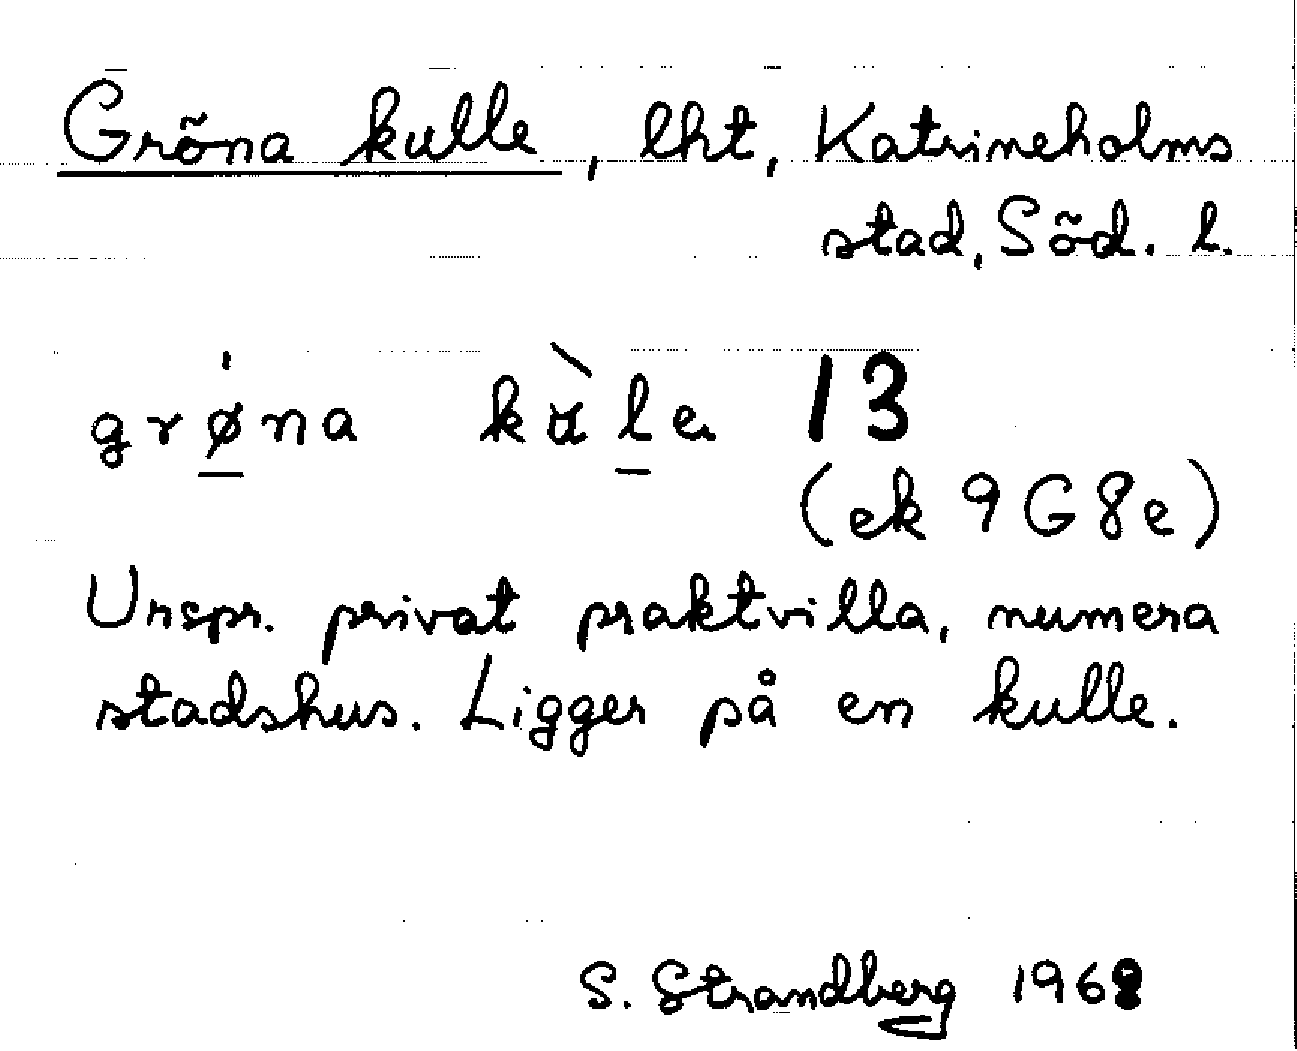 Gröna kulle, lht, Katrineholms
stad, Söd. l.
grǿ̲na kàl̲e 13
(ek 9G8e)
Urspr. privat praktvilla, numera
stadshus. Ligger på en kulle.
S. Strandberg 1968